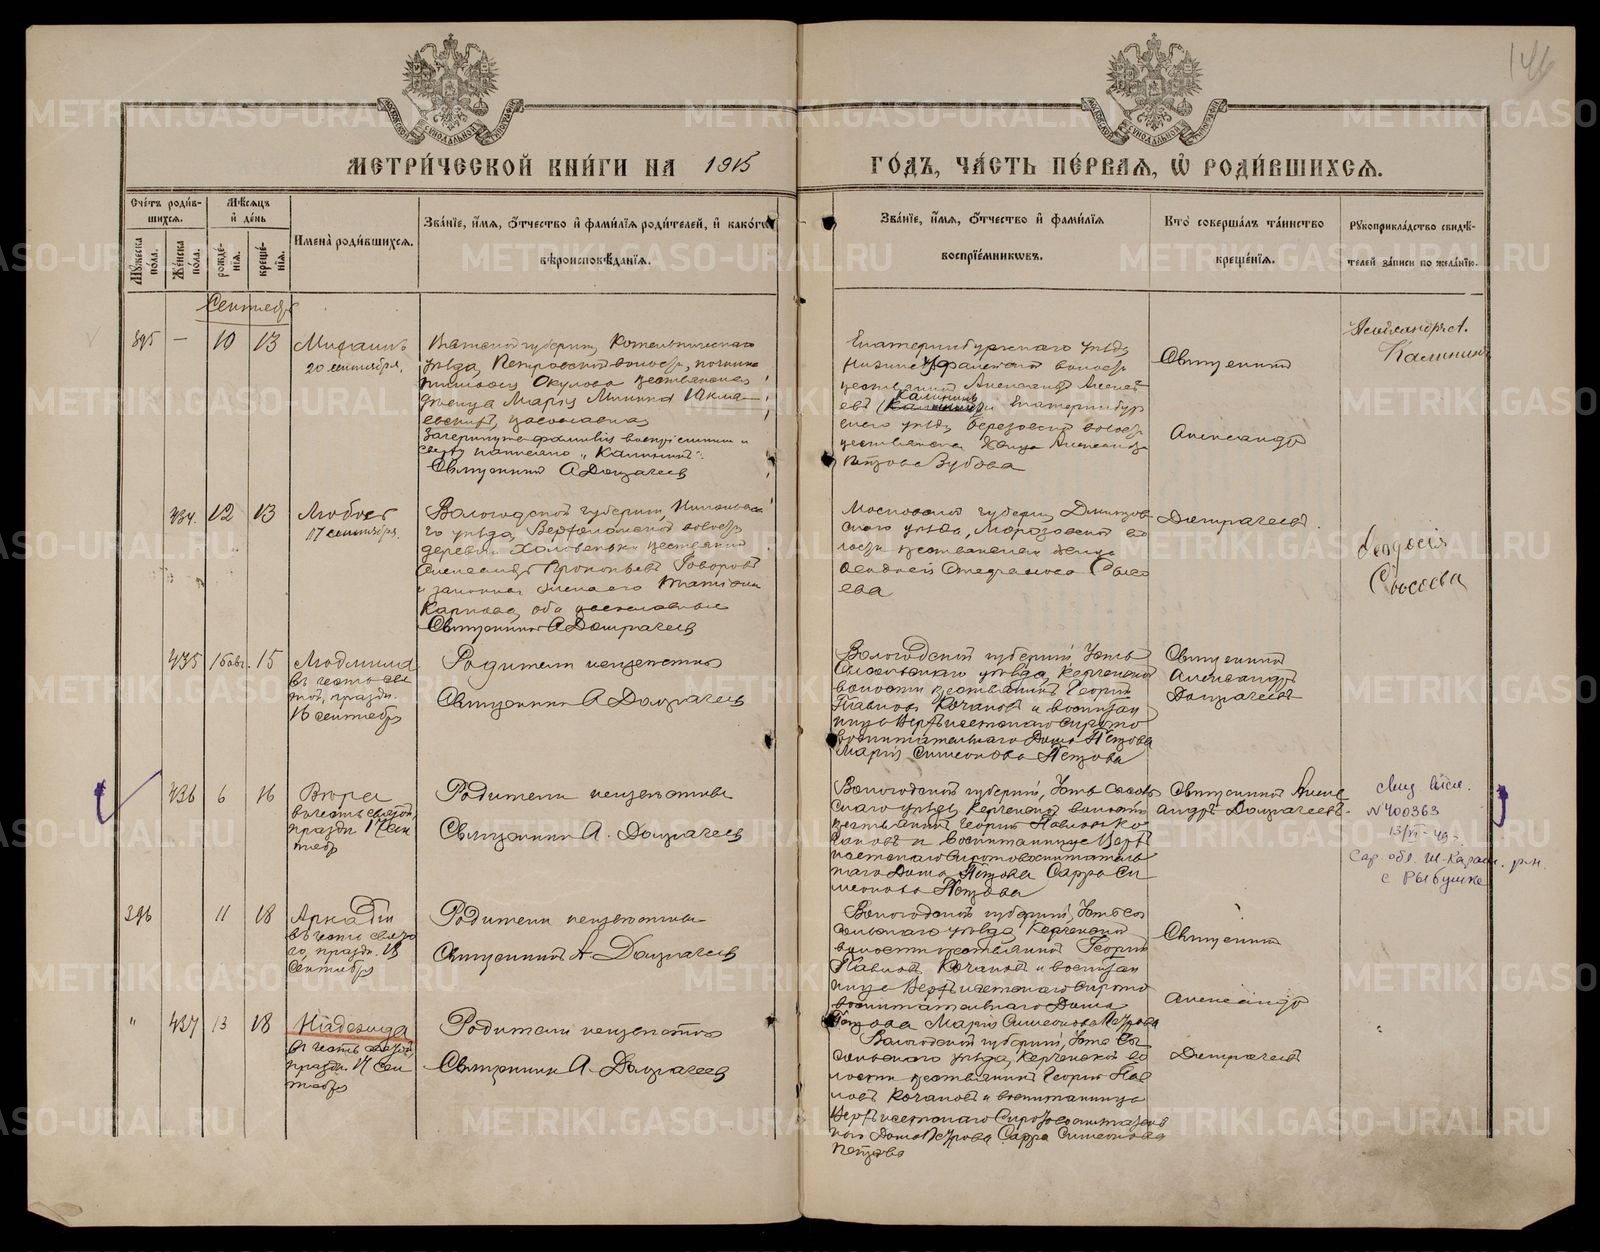 146
МЕТРИ́ЧЕСКОЙ КНИ́ГИ НА 1915
ГО́ДЪ, ЧА́СТЬ ПЕ́РВАЯ, Ѡ҆ РОДИ́ВШИХСЯ.
Сче́тъ роди́в-
шихся.
Му́жеска
по́ла.
Же́нска
по́ла.
Мѣ́сяцъ
и҆ де́нь
рожде́-
нїя.
креще́-
нїя.
Имена̀ роди́вшихся.
Зва́нїе, и҆́мя, ѻ҆́тчество и҆ фами́лїя роди́телей, и҆ како́гѡ
вѣроисповѣ́данїя.
Зва́нїе, и҆́мя, ѻ҆́тчество и҆ фами́лїя
воспрїе́мникѡвъ.
Кто̀ соверша́лъ та́инство
креще́нїя.
Рꙋкоприкла́дство свидѣ́-
телей за́писи по жела́нїю.
Сентябрь
395 — 10 13
Михаилъ
20 сентября.
Вятской губерніи, Котельническаго
уѣзда, Петровской волости, починка
Окулова крестьянская
дѣвица Марія
православная
Зачеркнуто фамилія воспріемника и
сверху написано „Калининъ".
Священникъ А Домрачеев
Екатеринбургскаго уѣзда
Нижнеуфалейской волости
крестьянинъ Александръ Алексѣ-
евъ Калининъ и Екатеринбур
скаго уѣзда Березовской волости
крестьянская дѣвица Александра
Петрова Зубова
Священникъ
Александръ
Домрачеевъ.
Александръ А.
Калининъ
434. 12 13
Любовь
17 сентября.
Вологодской губерніи, Никольска
го уѣзда, волости
деревни крестьянинъ
Александръ Прокопьевъ Говоровъ
и законная жена его Татіана
Карповна, оба православные
Священникъ А Домрачеев
Московской губерніи, Дмитров
скаго уѣзда, Морозовской во
лости крестьянская жена
Ѳеодосія Стефанова Сысо
ева
Ѳеодосія
Сысоева
435 16 авг. 15
Людмила
въ честь свя
той, праздн.
16 сентября
Родители неизвѣстны
Священникъ А Домрачеев
Вологодской губерніи, Усть
Сысольскаго уѣзда, Керченской
волости крестьянинъ Георгій
Павловъ Кочановъ и воспитан
ница Верхъ Исетскаго Сирото
воспитательнаго Дома Петрова
Марія Симеонова Петрова
Священникъ
Александръ
Домрачеевъ
436 6 16
Вѣра
въ честь святой,
праздн 17 сен
тябр
Родители неизвѣстны
Священникъ А. Домрачеев
Вологодской губерніи, Усть Сысоль
скаго уѣзда, Керченской волости
крестьянинъ Георгій Павловъ Ко-
чановъ и воспитанница Верхъ
Исетскаго Сиротовоспитатель
наго Дома Петрова Сарра Си
меонова Петрова
Священникъ Алек
андръ Домрачеевъ.
№ 400363
13/VI - 49 г.
Сар. обл. Ш-Карам. р-н.
с Рыбушка
396 11 18
Аркадій
въ честь свято
го, праздн. 18
сентября
Родители неизвѣстны
Священникъ А. Домрачеев
Вологодской губерніи, Усть Сы
сольскаго уѣзда, Керченской
волости крестьянинъ Георгій
Павловъ Кочановъ и воспитан
ница Верхъ Исетскаго Сирото
воспитательнаго Дома
Петрова Марія Симеонова Петрова
Священникъ
Александръ
Домрачеевъ
" 437 13 18
Надежда
въ честь святой,
праздн. 17 сен
тября
Родители неизвѣстны
Священникъ А. Домрачеев
Вологодской губерніи, Усть Сы
сольскаго уѣзда, Керченской во
лости крестьянинъ Георгій Пав
ловъ Кочановъ и воспитанница
Верхъ Исетскаго Сиротовоспитатель
наго Дома Петрова Сарра Симеонова
Петрова
METRIKI.GASO-URAL.RU